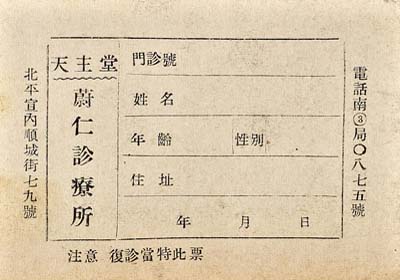 天主堂
蔚仁診療所
門診號
姓名
年齡 性別
住址
年 月 日
電話南③局〇八七五號
北平宣內順城街七九號
注意 復診當特此票